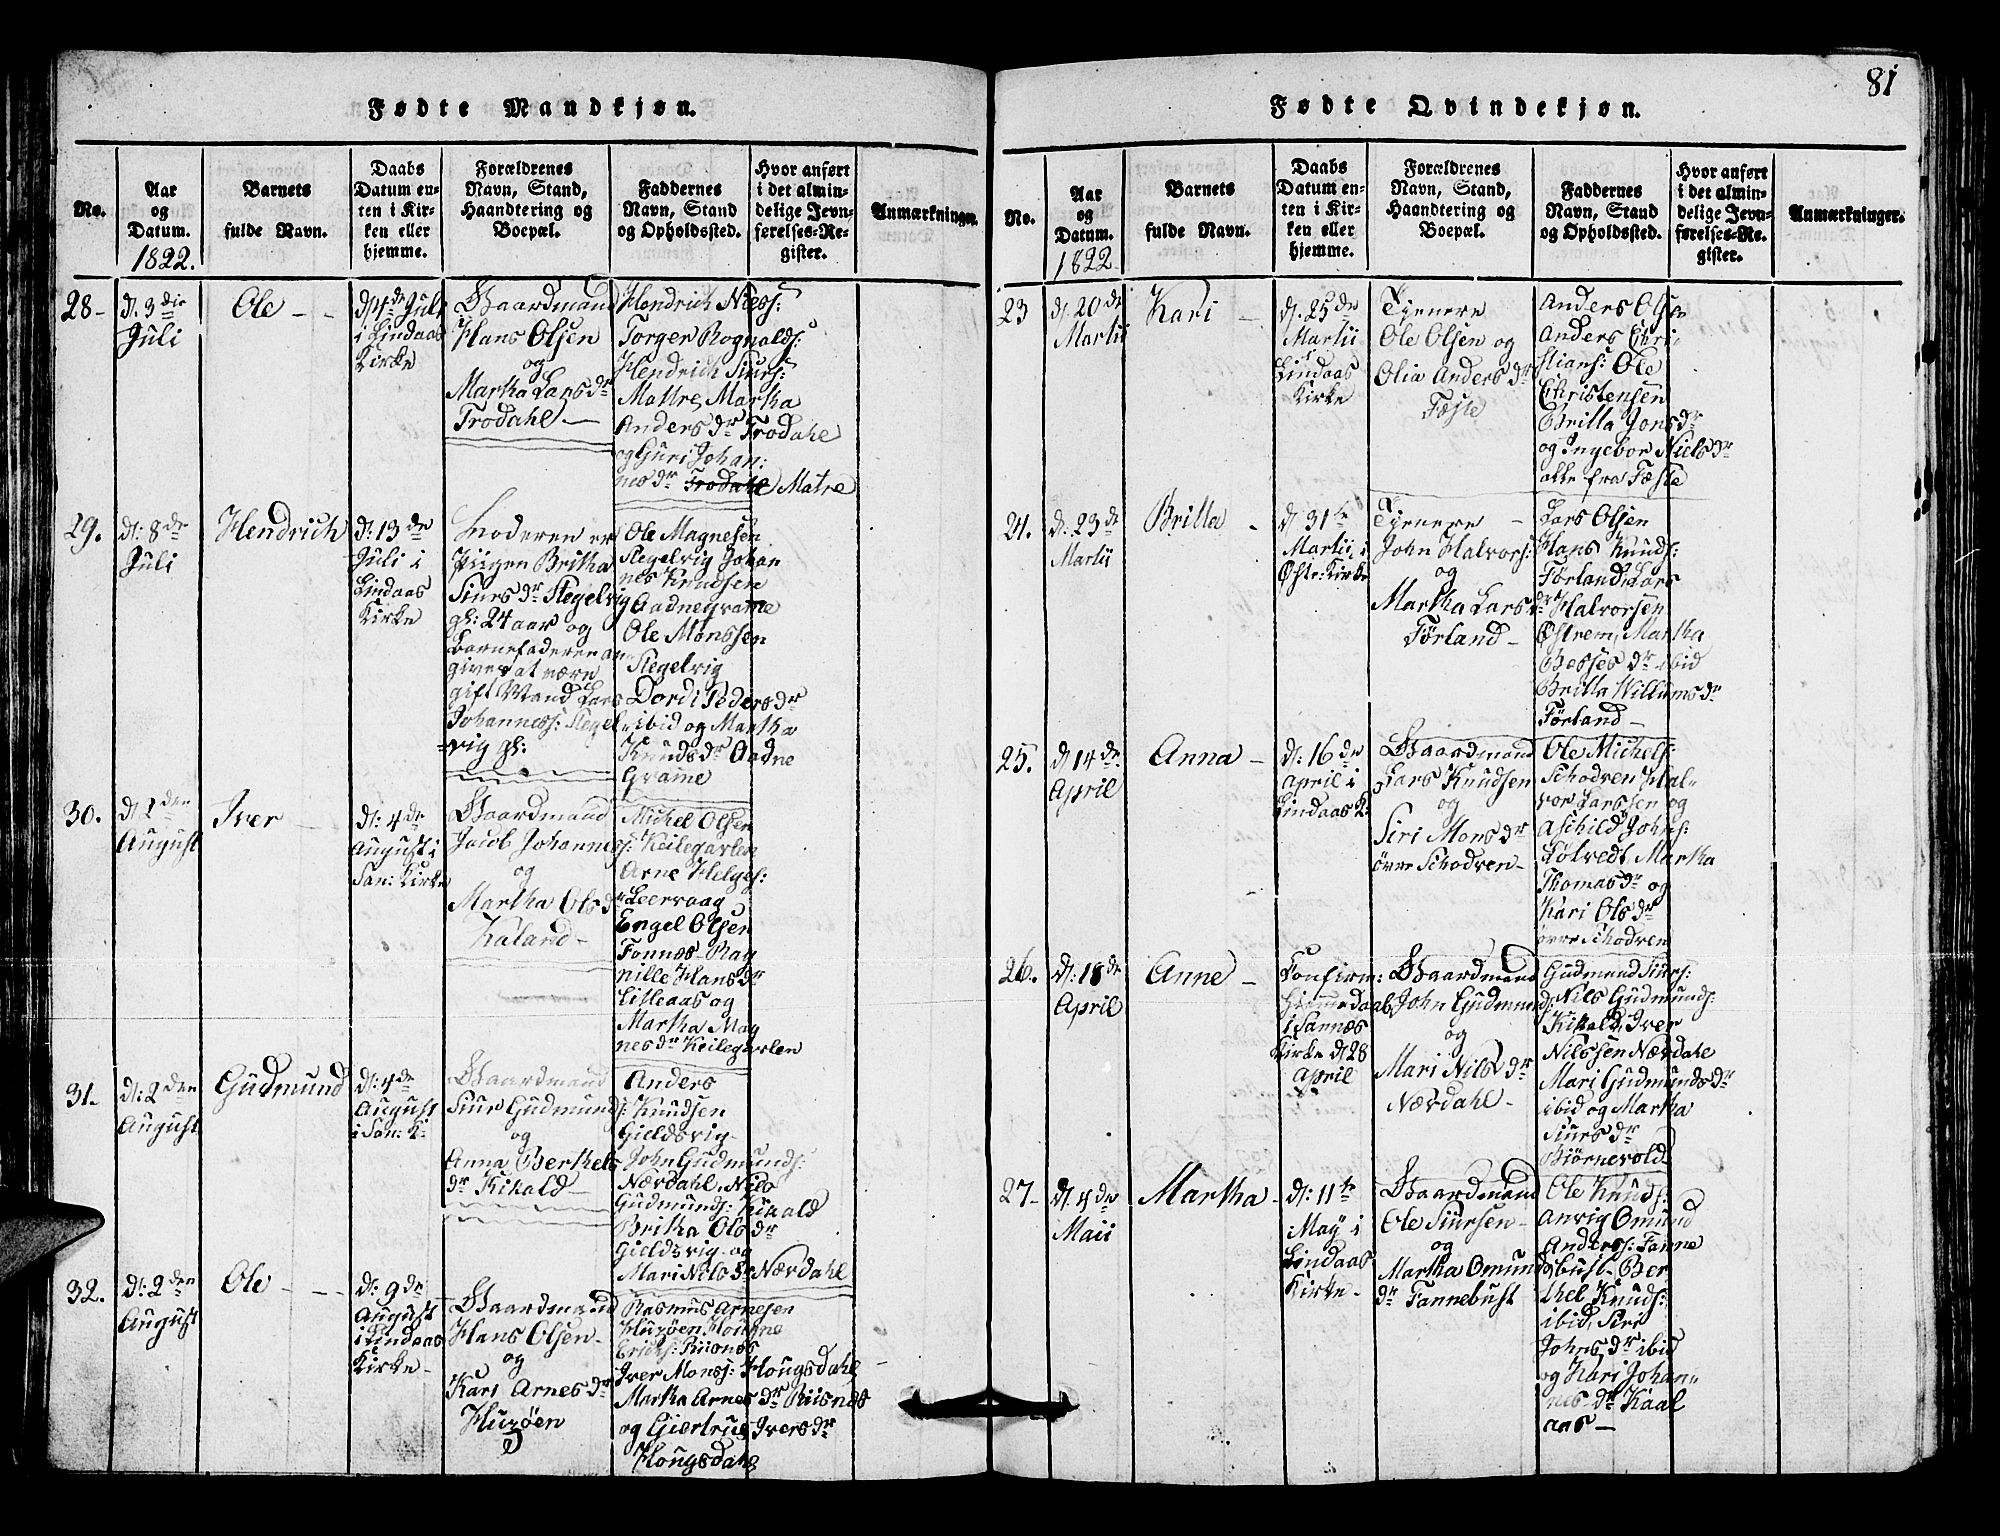 81
Fødte Mandkjøn.
No.
Aar
og
Datum.
1822.
Barnets
fulde Navn.
Daabs
Datum en-
ten i Kir-
ken eller
hjemme.
Forældrenes
Navn, Stand,
Haandtering og
Boepæl.
Faddernes
Navn, Stand
og Opholdssted.
Hvor anført
i det almin-
delige Jevn-
førelses-Re-
gister.
Anmærkninger.
28-
d. 3die
Juli
Ole - -
d 14de Juli
i Lindaas
Kirke
Gaardmand
Hans Olsen
og
Martha Larsdr
Trodahl -
Hendrich Niels:
Torger Rognalds:
Hendrich Siurs:
Mattre, Martha
Andersdr Trodahl
og Guri Johan:
nesdr Trodahl Matre
29.
d: 8de
Juli
Hendrich
d: 13de
Juli i
Lindaas
Kirke
Moderen er
Piigen Britha
Siursdr Stegelvig
gl: 24 aar og
Barnefaderen an-
gives at være
gift Mand Lars
Johanness: Stegel-
vig gl:
Ole Magnesen
Stegelvig Johan
nes Knudsen
Aadnegrame
Ole Monssen
Stegelvig
Dordi Pedersdr
ibid og Martha
Knudsdr Aadne
Grame
30.
d. 1den
August
Iver -
d: 4de
August i
San: Kirke
Gaardmand
Jacob Johannes
og
Martha Olsd
Kaland -
Michel Olsen
s: Keilegavlen
Arne Helges:
r Leervaag
Engel Olsen
Fonnes Rag
nille Hansdr
Lilleaas og
Martha Mag
nesdr Keilegavlen
31.
d: 2den
August
Gudmund
d: 4de
August
i San: K:
Gaardmand
Siur Gudmund
og
Anna Berthels
dr Kikald -
Anders
s: Knudsen
Gieldsvig-
John Gudmunds:
Nærdahl, Nils
Gudmunds: Kikald
Britha Olsdr
Gieldsvig og
Mari Nilsdr Nærdahl
32.
d: 2den
August
Ole - -
d: 9de
August
i Lindaas
Kirke -
Gaardmand
Hans Olsen-
og
Kari Arnesdr
Huzøen
Rasmus Arnesen
Huzøen,
Erichs: Riisnes
Iver Monss: Hougsdahl
Martha Arnesdr Riisnes
og Giertrug Iversdr
Hougsdahl
Fødte Qvindekjøn.
No.
Aar
og
Datum.
1822
Barnets
fulde Navn.
Daabs
Datum en-
ten i Kir-
ken eller
hjemme.
Forældrenes
Navn, Stand,
Haandtering og
Boepæl.
Faddernes
Navn, Stand
og Opholdssted.
Hvor anført
i det almin-
delige Jevn-
førelses-Re-
gister.
Anmærkninger.
23
d. 20de
Martii
Kari -
d. 25de
Martii
i
Lindaas
Kirke
Tjenere
Ole Olsen og
Olia Andersdr
Fæste
Anders Olsen
Anders Chri-
stians: Ole
Christensen
Britta Jonsdr
og Ingebor Nielsdr
alle fra Fæste
24.
d: 23de
Martii
Britta -
d 31te
Martii i
Østr: Kirke
Tjenere -
John Halvors:
og
Martha Lars
dr
Førland -
Lars Olsen
Hans Knuds:
Førland, Lars
Halvorsen
Østrem, Martha
Bessesdr ibid
Britta Willumsdr
Førland -
25.
d 14de
April
Anna -
d: 16de
April i
Lindaas K:
Gaardmand
Lars Knudsen
og
Siri Monsdr
øvre Schodven-
Ole Michels:
Schodven Hal-
vor Larssen og
Aschild Johns:
Tølvedt, Martha
Thomasdr og
Kari Olsdr
øvre Schodven
26.
d: 18de
April
Anne -
Confirm:
Hjemmedaab
i Sannæs
Kirke d 28
April
Gaardmand
John Gudmund
og
Mari Nilsdr
Nærdahl-
Gudmund Siurs:
s: Nils Gudmunds:
Kikald, Iver
Nilssen Nærdahl
Mari Gudmundsdr
ibid og Martha
Siursdr
Biørnevold
27-
d. 4de
Maii
Martha -
d: 11te
May i
Lindaas
Kirke -
Gaardmand
Ole Siursen-
og
Martha Omund
dr Fannebust
Ole Knuds:
Anvig Omund
Anderss: Fanne
bust- Ber
thel Knuds:
ibid, Siri
Johnsdr ibid
og Kari Johan-
nesdr Kaal
aas -